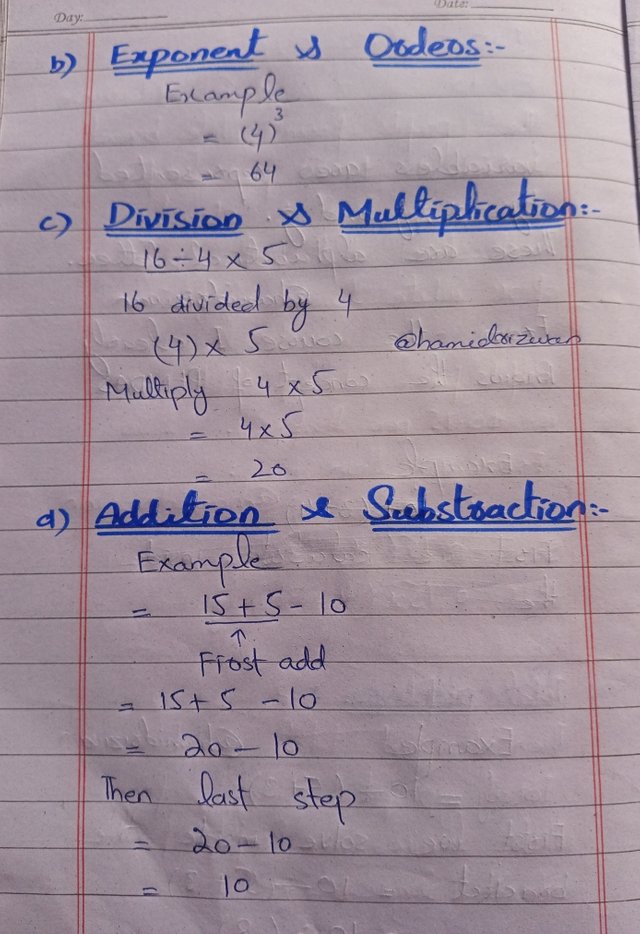 Day:
Date:
b) Exponent & Orders:-
Example
= (4)³
= 64
c) Division & Multiplication:-
16 ÷ 4 × 5
16 divided by 4
(4) × 5 @hamidrizwan
Multiply 4 × 5
= 4 × 5
= 20
d) Addition & Substraction:-
Example
= 15 + 5 - 10
↑
First add
= 15 + 5 - 10
= 20 - 10
Then last step
= 20 - 10
= 10